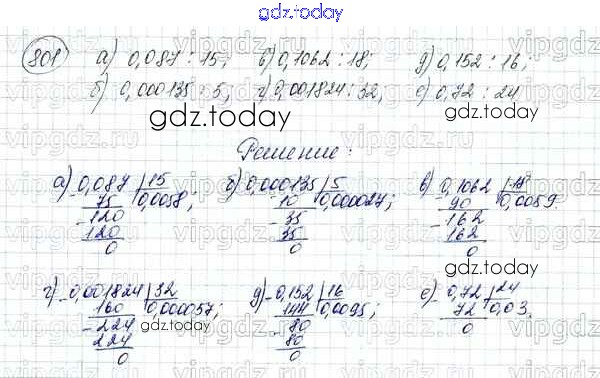 gdz.today
801 а) 0,087 : 15; в) 0,1062 : 18; д) 0,152 : 16;
б) 0,000135 : 5; г) 0,001824 : 32; е) 0,72 : 24
gdz.today
Решение:
а) 0,087 15 б) 0,000135 5 в) 0,1062 18
75 0,0058; 10 0,000027; 90 0,0059
120 35 162
120 35 162
0 0 0
gdz.today
г) 0,001824 32 д) 0,152 16 е) 0,72 24
160 0,000057; 144 0,0095; 72 0,03.
224 80 0
224 80
0 0
gdz.today
gdz.today